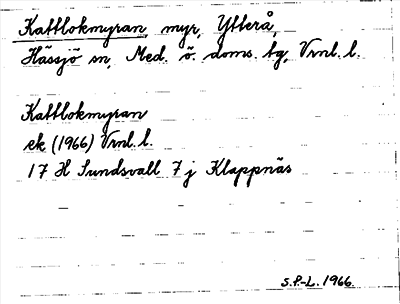 Kattlokmyran, myr, Ytterå,
Hässjö sn, Med. ö. doms. tg, Vrnl. l.
Kattlokmyran
ek (1966) Vrnl. l.
17 H Sundsvall 7 j Klappnäs
S.P.-L. 1966.